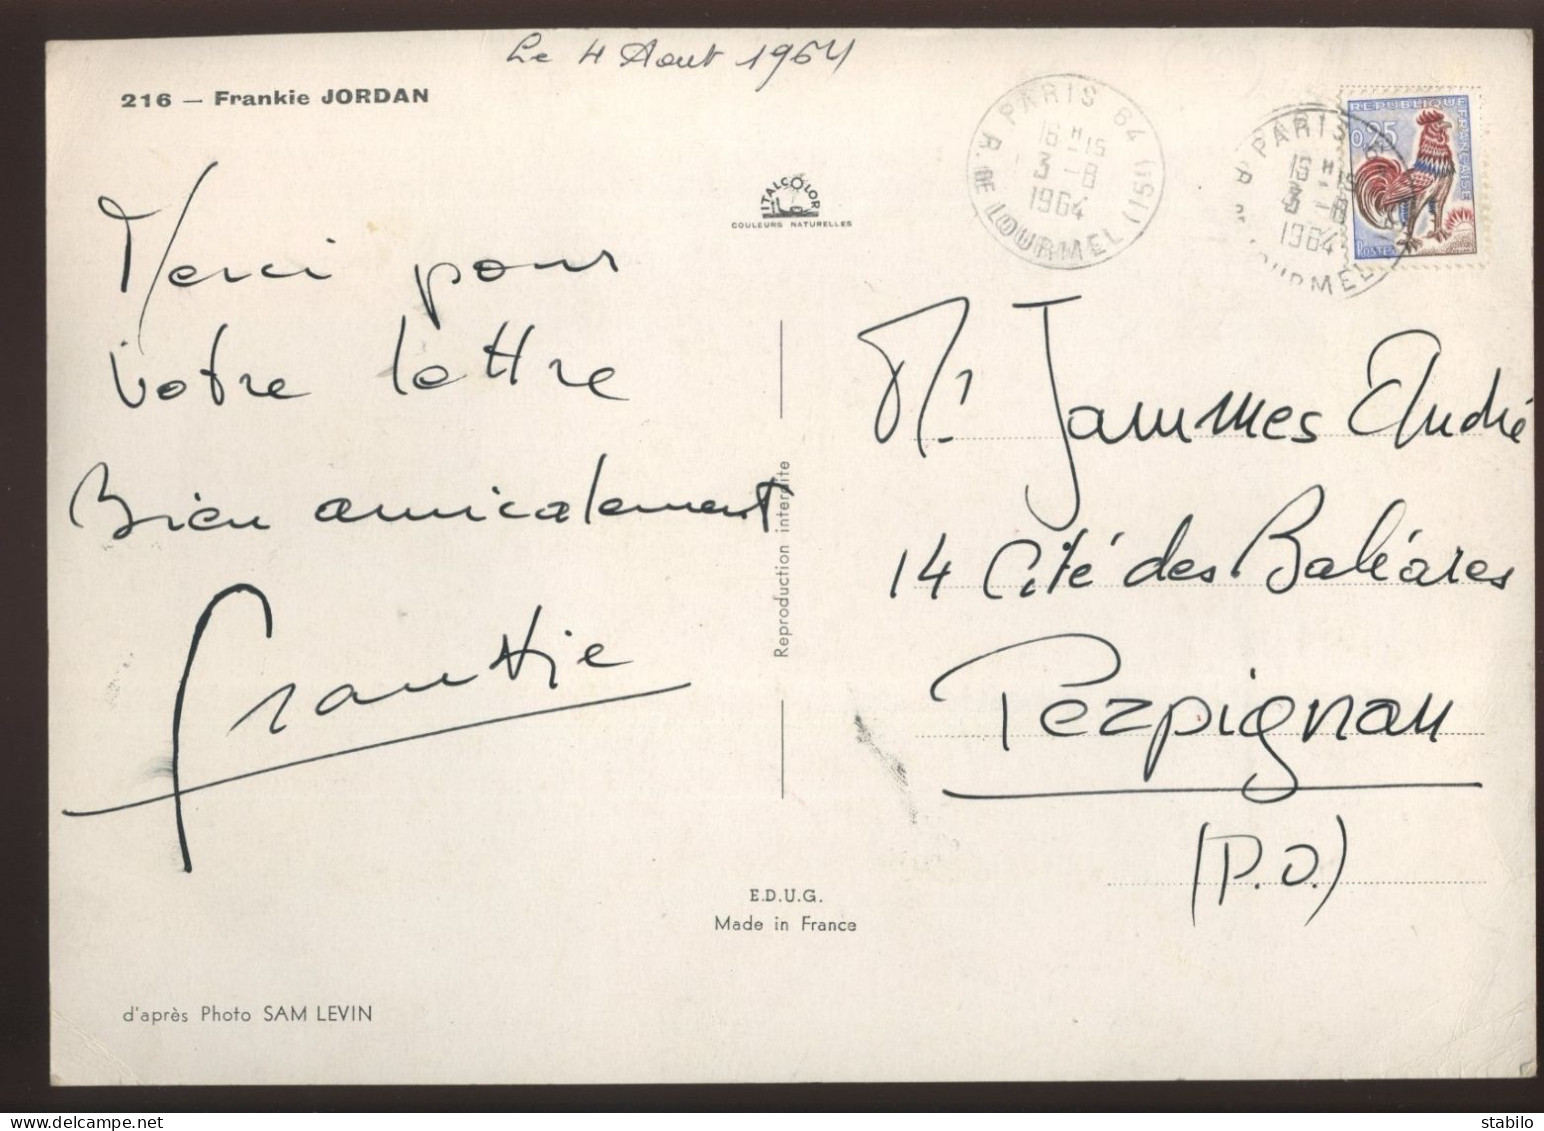 Le 4 Aout 1964
216 — Frankie JORDAN
Merci pour
votre lettre
Bien amicalement
Frankie
d'après Photo SAM LEVIN
ITALCOLOR
COULEURS NATURELLES
Reproduction interdite
E.D.U.G.
Made in France
PARIS 64
16H15
3-8
1964
R. DE LOURMEL (15e)
PARIS
16H15
3-8
1964
REPUBLIQUE FRANÇAISE
0,25
POSTES
Mr Jammes André
14 Cité des Baléares
Perpignan
(P.O.)
delcampe.net
stabilo